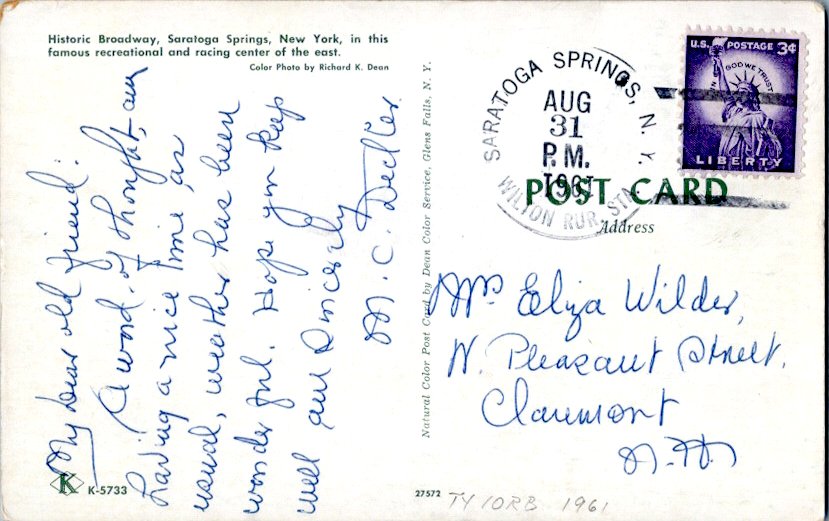 Historic Broadway, Saratoga Springs, New York, in this
famous recreational and racing center of the east.
Color Photo by Richard K. Dean
My Dear old friend:
A word of thought, am
having a nice time as
usual, weather has been
wonderful. Hope you keep
well and Sincerely
M. C.
K
K-5733
Natural Color Post Card by Dean Color Service, Glens Falls, N. Y.
27572
TY 10RB 1961
SARATOGA SPRINGS, N. Y.
AUG
31
P.M.
1961
WILTON RUR. STA.
U.S. POSTAGE 3¢
IN GOD WE TRUST
LIBERTY
POST CARD
Address
Mrs Eliza Wilder,
N. Pleasant Street.
Claremont
N.H.